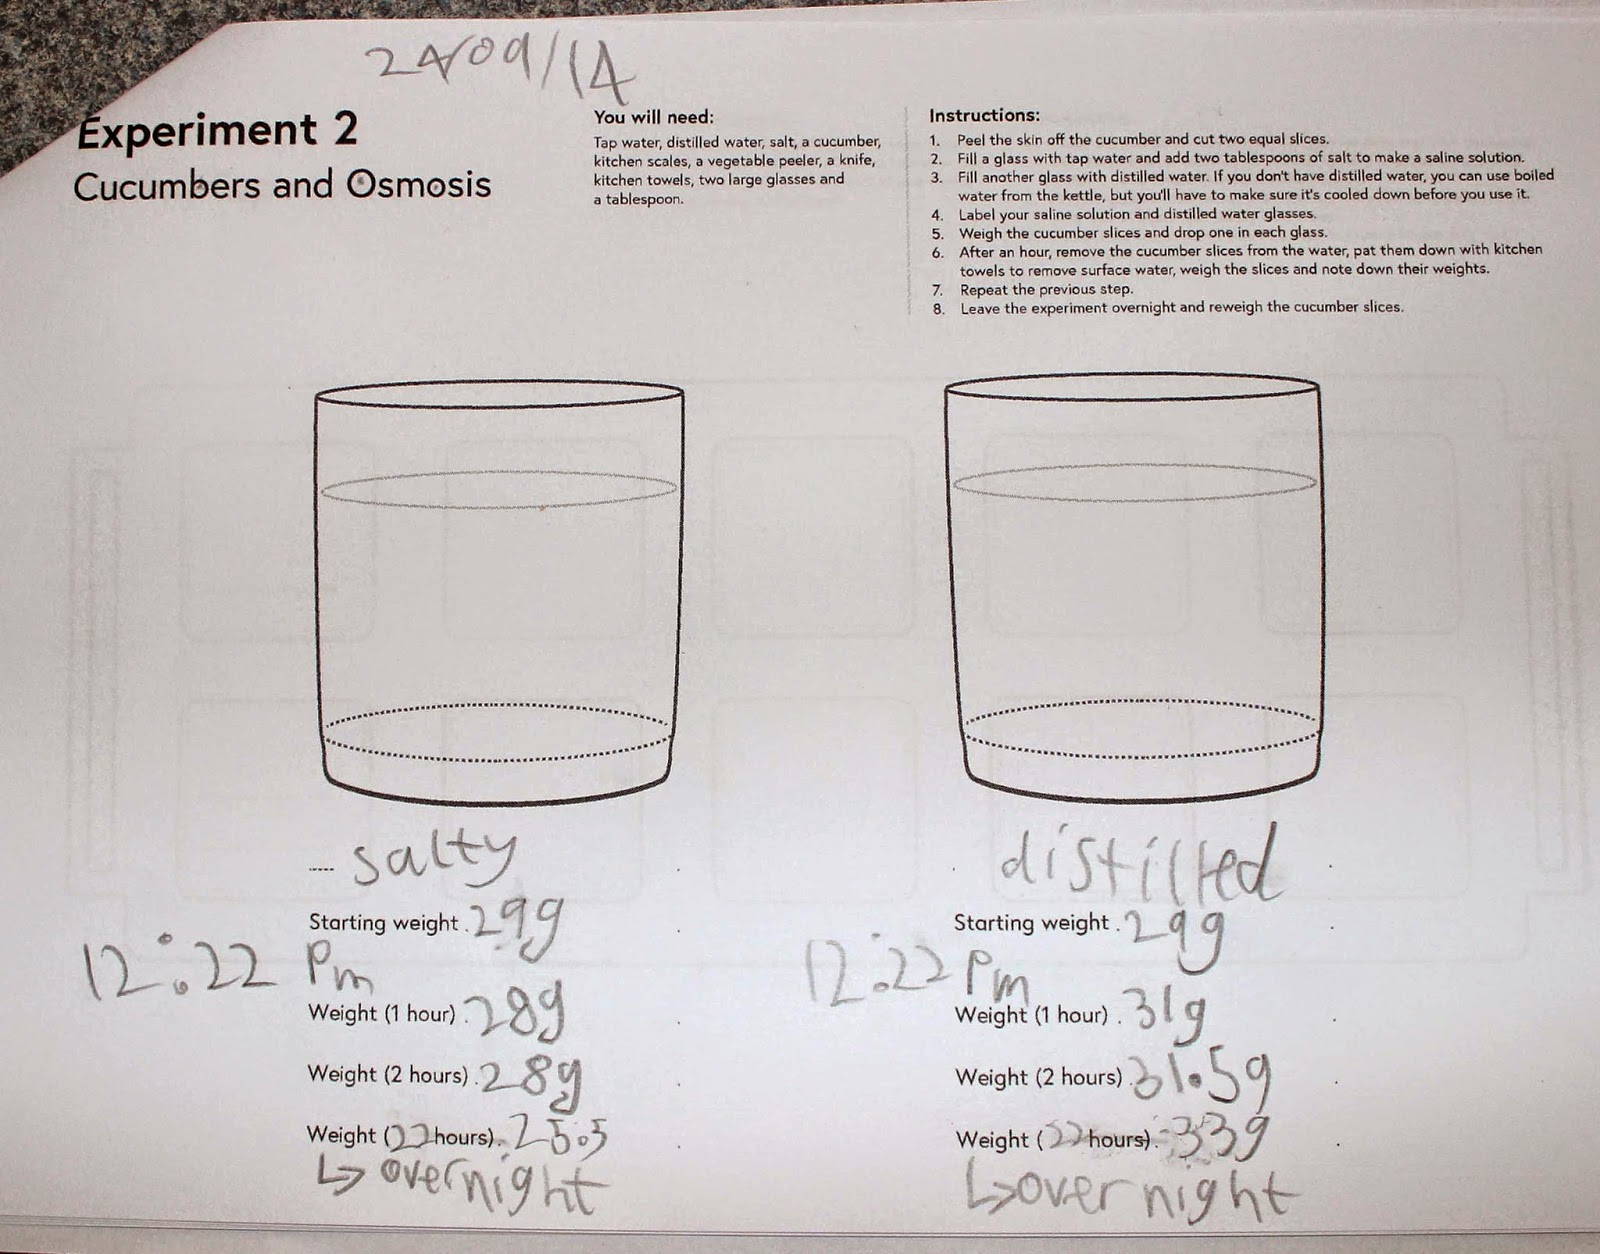 24/09/14
Experiment 2
Cucumbers and Osmosis
You will need:
Tap water, distilled water, salt, a cucumber,
kitchen scales, a vegetable peeler, a knife,
kitchen towels, two large glasses and
a tablespoon.
Instructions:
1. Peel the skin off the cucumber and cut two equal slices.
2. Fill a glass with tap water and add two tablespoons of salt to make a saline solution.
3. Fill another glass with distilled water. If you don't have distilled water, you can use boiled
water from the kettle, but you'll have to make sure it's cooled down before you use it.
4. Label your saline solution and distilled water glasses.
5. Weigh the cucumber slices and drop one in each glass.
6. After an hour, remove the cucumber slices from the water, pat them down with kitchen
towels to remove surface water, weigh the slices and note down their weights.
7. Repeat the previous step.
8. Leave the experiment overnight and reweigh the cucumber slices.
salty
Starting weight 29g
12:22 Pm
Weight (1 hour) 28g
Weight (2 hours) 28g
Weight (22 hours) 25.5
↳ overnight
distilled
Starting weight 29g
12:22 Pm
Weight (1 hour) 31g
Weight (2 hours) 31.5g
Weight (22 hours) 33g
↳ overnight